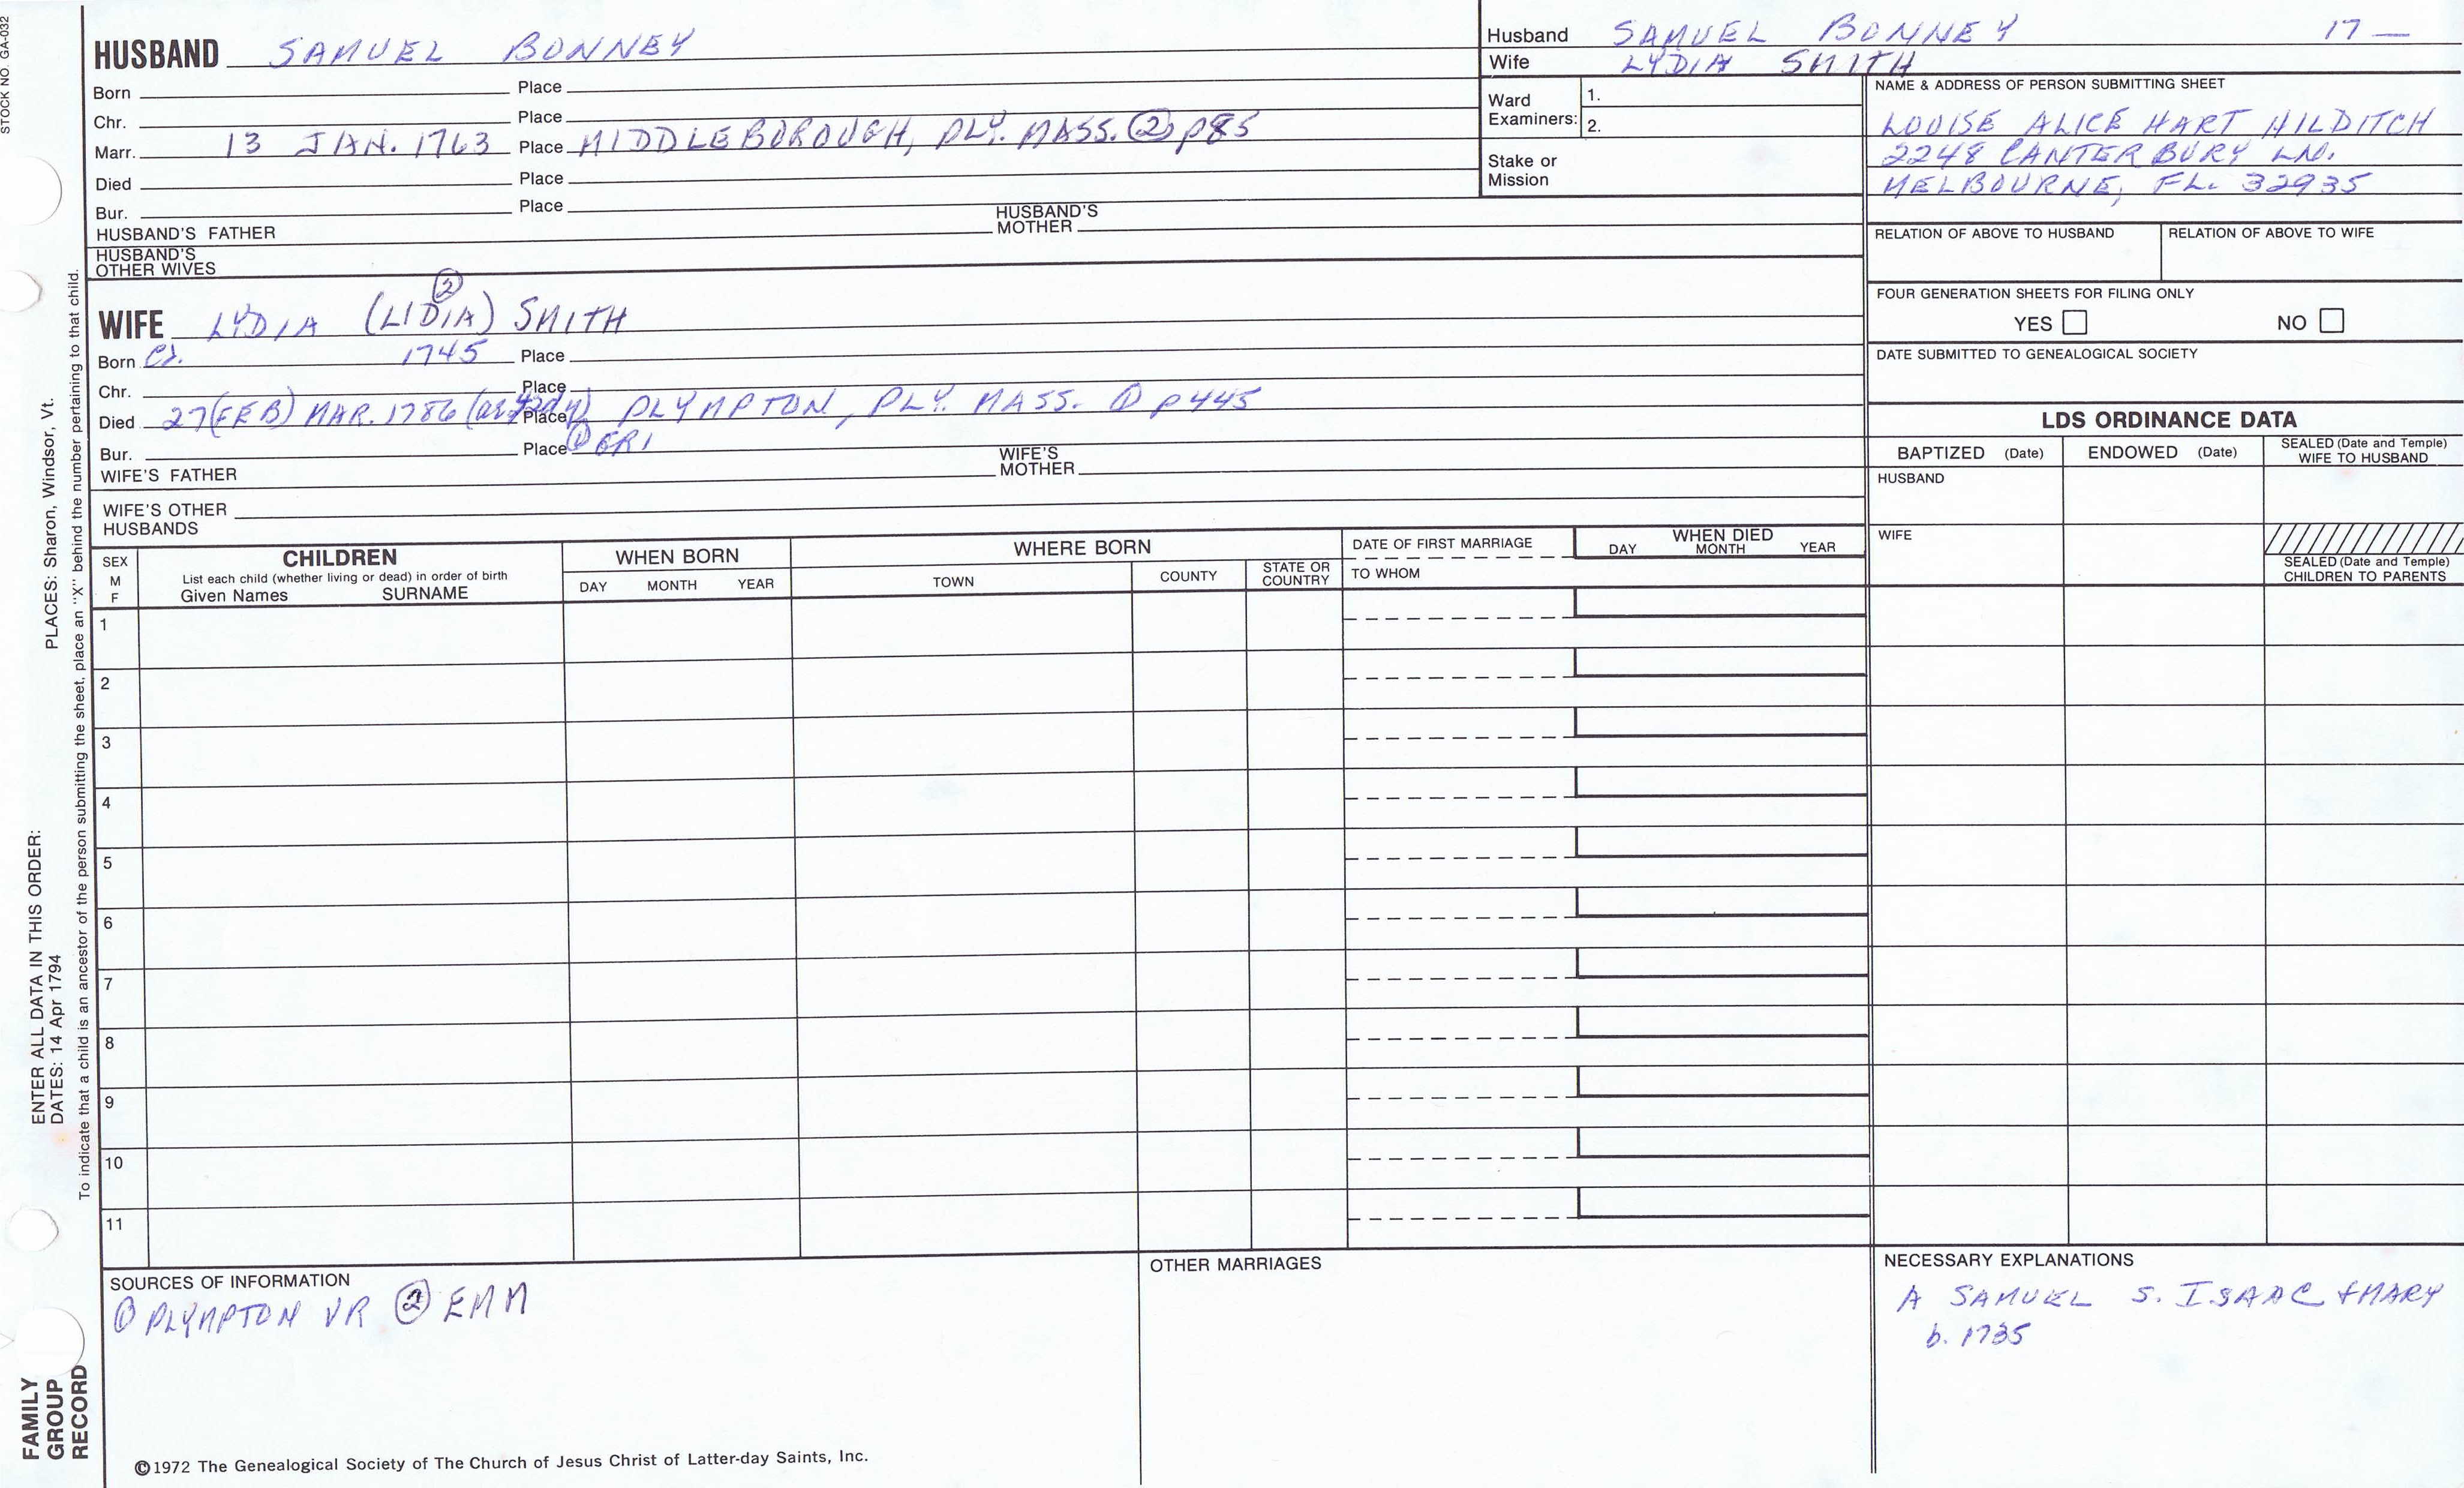 STOCK NO. GA-032
HUSBAND SAMUEL BONNEY
Born Place
Chr. Place
Marr. 13 JAN. 1763 Place MIDDLEBOROUGH, PLY. MASS. ② p85
Died Place
Bur. Place
HUSBAND'S FATHER HUSBAND'S MOTHER
HUSBAND'S OTHER WIVES
Husband SAMUEL BONNEY 17—
Wife LYDIA SMITH
Ward Examiners: 1.
2.
Stake or Mission
NAME & ADDRESS OF PERSON SUBMITTING SHEET
LOUISE ALICE HART HILDITCH
2248 CANTERBURY LN.
MELBOURNE, FL. 32935
RELATION OF ABOVE TO HUSBAND RELATION OF ABOVE TO WIFE
FOUR GENERATION SHEETS FOR FILING ONLY
YES NO
DATE SUBMITTED TO GENEALOGICAL SOCIETY
②
WIFE LYDIA (LIDIA) SMITH
Born Ca. 1745 Place
Chr. Place
Died 27 (FEB) MAR. 1786 Place PLYMPTON, PLY. MASS. ① p445
Bur. Place ① GR1
WIFE'S FATHER WIFE'S MOTHER
WIFE'S OTHER HUSBANDS
LDS ORDINANCE DATA
BAPTIZED (Date) ENDOWED (Date) SEALED (Date and Temple) WIFE TO HUSBAND
HUSBAND
WIFE
SEALED (Date and Temple) CHILDREN TO PARENTS
SEX M F
CHILDREN
List each child (whether living or dead) in order of birth
Given Names SURNAME
WHEN BORN
DAY MONTH YEAR
WHERE BORN
TOWN COUNTY STATE OR COUNTRY
DATE OF FIRST MARRIAGE
TO WHOM
WHEN DIED
DAY MONTH YEAR
1
2
3
4
5
6
7
8
9
10
11
SOURCES OF INFORMATION
① PLYMPTON VR ② EMM
OTHER MARRIAGES
NECESSARY EXPLANATIONS
A SAMUEL S. ISAAC & MARY
b. 1735
©1972 The Genealogical Society of The Church of Jesus Christ of Latter-day Saints, Inc.
FAMILY GROUP RECORD
ENTER ALL DATA IN THIS ORDER:
DATES: 14 Apr 1794
PLACES: Sharon, Windsor, Vt.
To indicate that a child is an ancestor of the person submitting the sheet, place an "X" behind the number pertaining to that child.